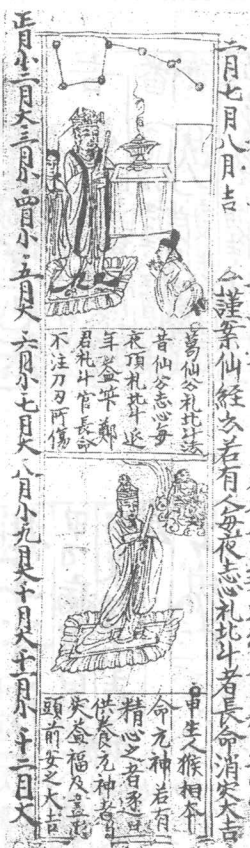 二月七月八月吉
謹案仙經云若有人每夜志心礼北斗者長命消灾大吉
葛仙公礼北斗法
昔仙公志心每
夜頂礼北斗延
年益筭鄭
君礼斗官長命
不注刀刃所傷
申生人猴相本
命元神若有
精心之者
供養元神者
灾益福
頭前安之大吉
正月小二月大三月小四月小五月大六月小七月大八月小九月大十月大十一月小十二月大